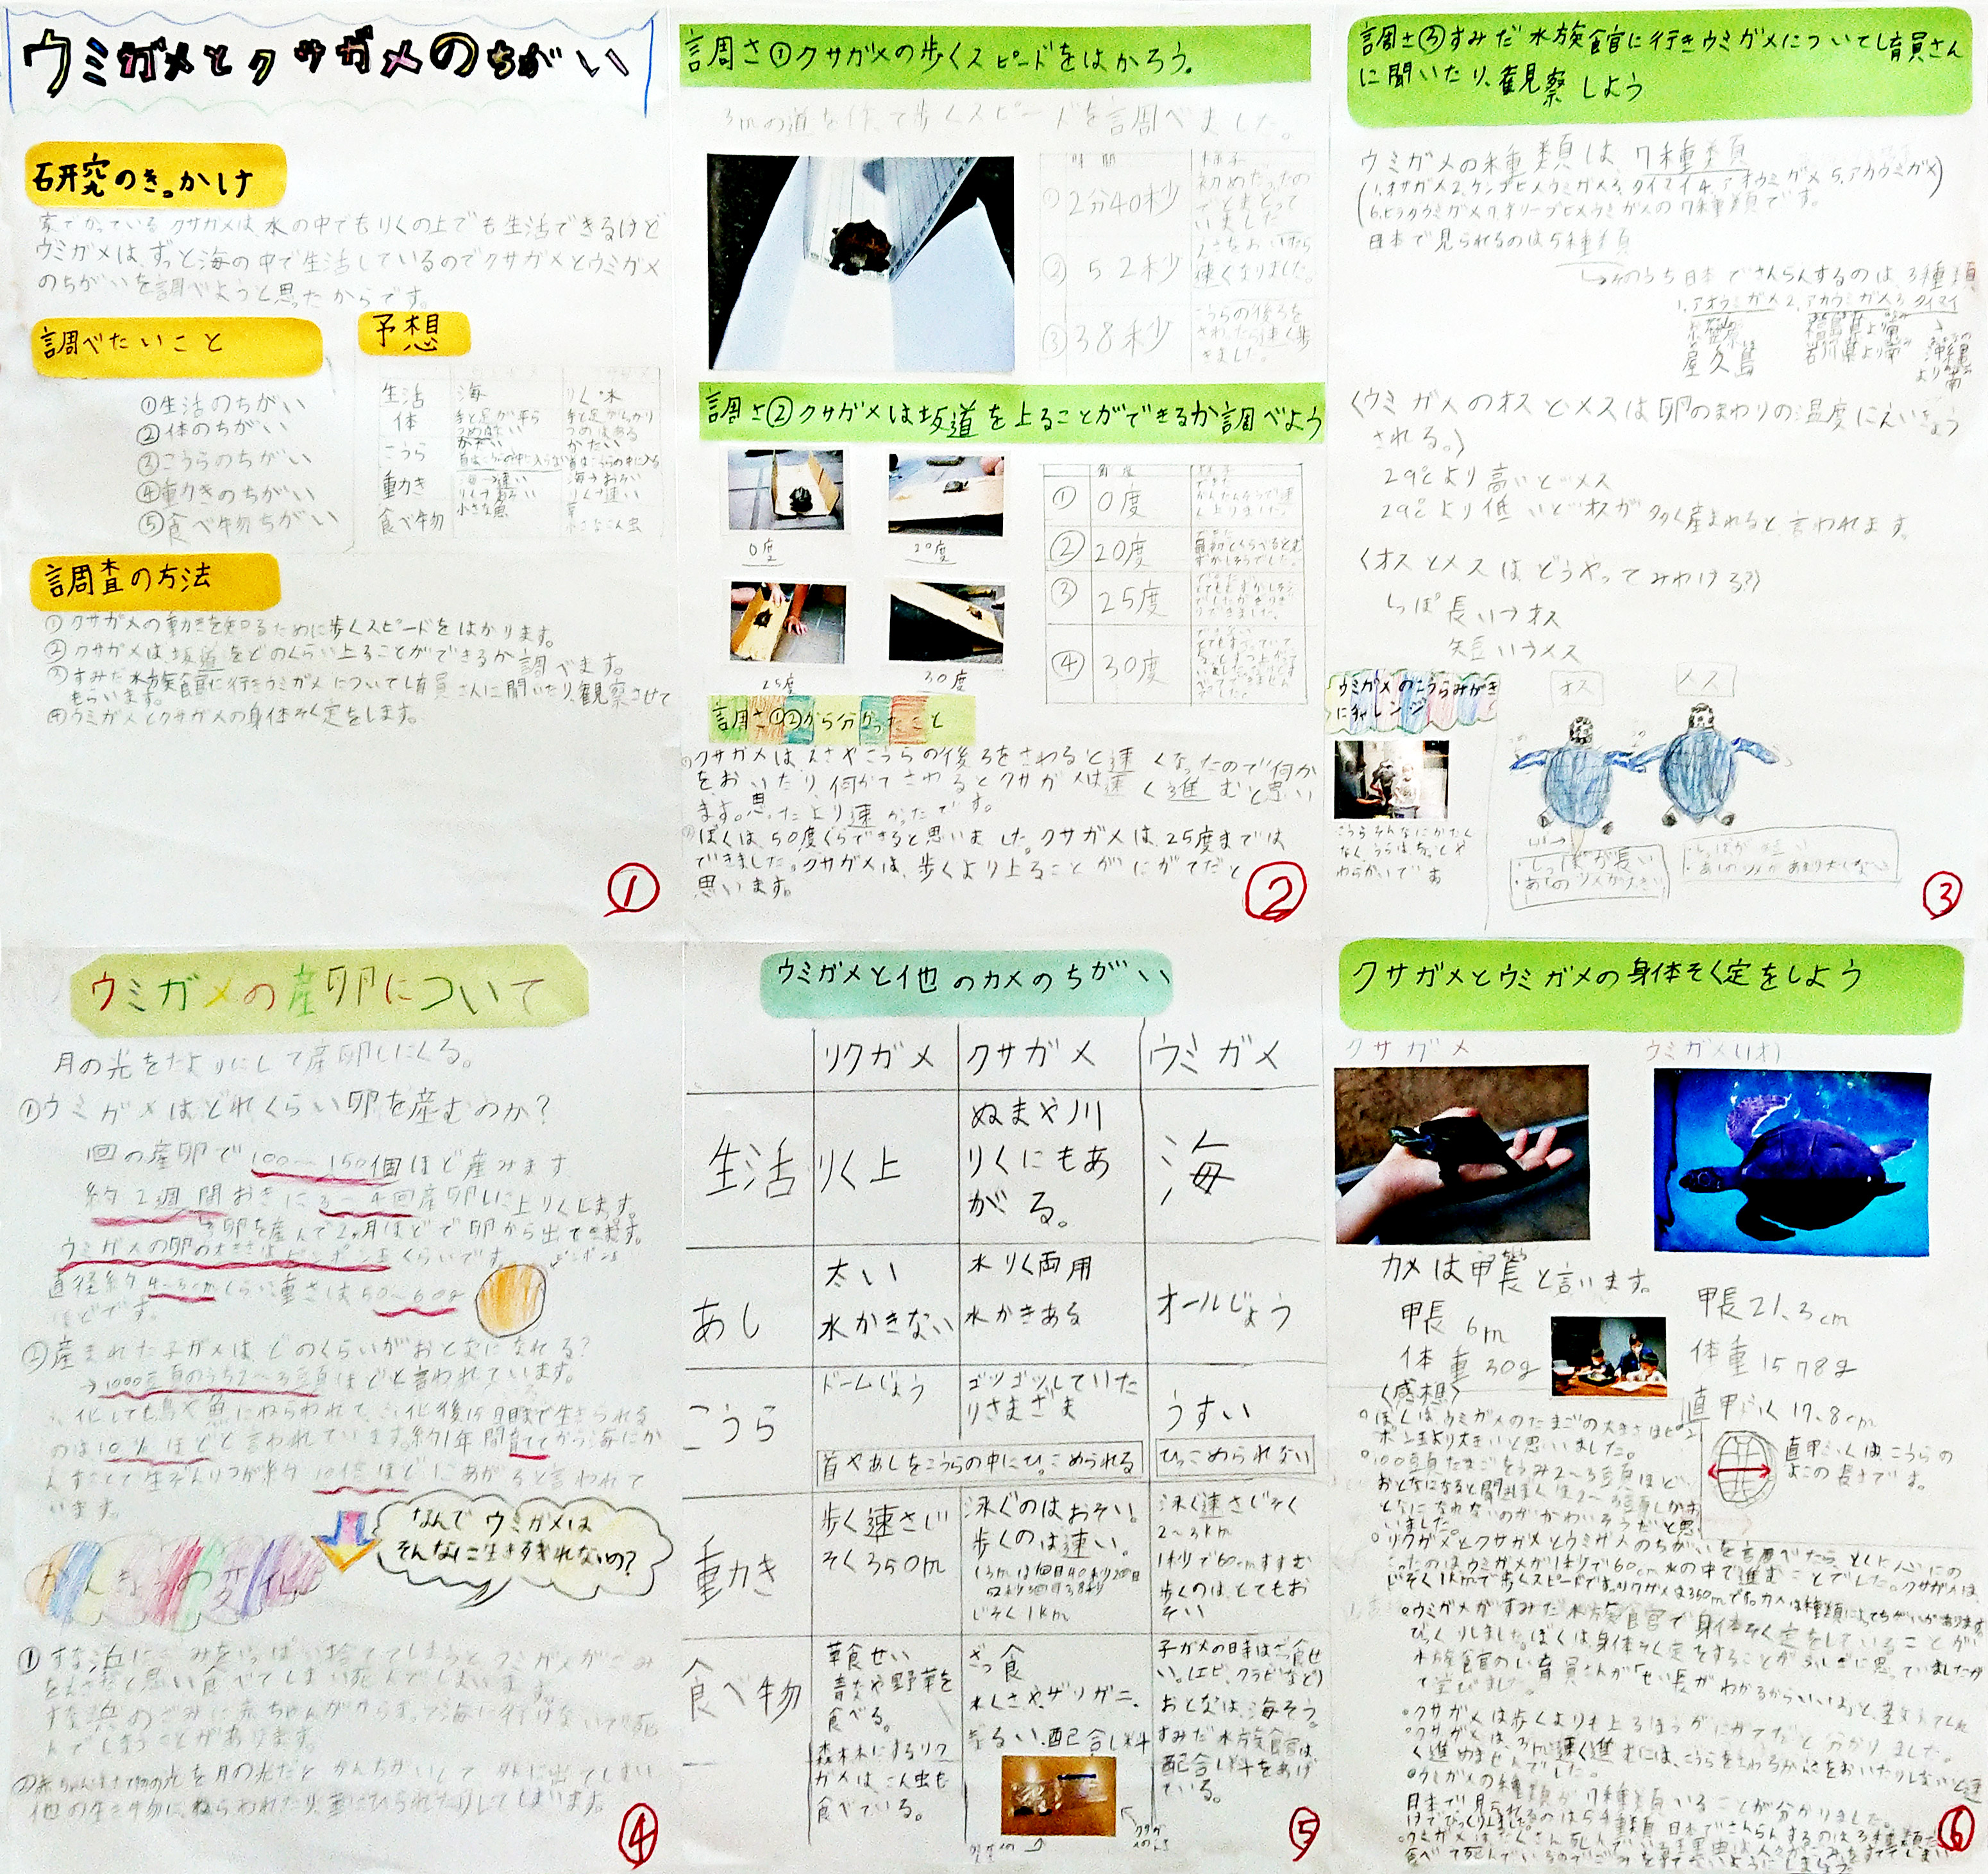 ウミガメとクサガメのちがい
研究のきっかけ
家でかっているクサガメは、水の中でもりくの上でも生活できるけど
ウミガメは、ずっと海の中で生活しているのでクサガメとウミガメ
のちがいを調べようと思ったからです。
調べたいこと
①生活のちがい
②体のちがい
③こうらのちがい
④動きのちがい
⑤食べ物ちがい
予想
生活 海 りく・水
体
こうら かたい かたい
動き 海→速い 海→おそい
りく→おそい りく→速い
食べ物 小さな魚 草
小さなこん虫
調査の方法
①クサガメの動きを知るために歩くスピードをはかります。
②クサガメは、坂道をどのくらい上ることができるか調べます。
③すみだ水族館に行きウミガメについてし育員さんに聞いたり、観察させて
もらいます。
④ウミガメとクサガメの身体そく定をします。
①
調さ①クサガメの歩くスピードをはかろう。
3mの道を作って歩くスピードを調べました。
時間 様子
①2分40秒 初めだったの
でとまどって
いました
②52秒 えさをおいたら
速くなりました。
③38秒 こうらの後ろを
さわったら速く歩
きました。
調さ②クサガメは坂道を上ることができるか調べよう
0度 20度
25度 30度
角度 様子
①0度
②20度
③25度
④30度
調さ①②から分かったこと
①クサガメはえさやこうらの後ろをさわると速くなったので何か
をおいたり、何かでさわるとクサガメは速く進むと思い
ます。思ったより速かったです。
②ぼくは、50度くらできると思いました。クサガメは、25度までは
できました。クサガメは、歩くより上ることがにがてだと
思います。
②
調さ③すみだ水族館に行きウミガメについてし育員さん
に聞いたり、観察しよう
ウミガメの種類は7種類
(1.オサガメ2.ケンプヒメウミガメ3.タイマイ4.アオウミガメ5.アカウミガメ)
(6.ヒラタウミガメ7.オリーブヒメウミガメの7種類です。
日本で見られるのは5種類
→そのうち日本でさんらんするのは、3種類
1.アオウミガメ2.アカウミガメ3.タイマイ
小笠原
屋久島
福島県より南
石川県より南
沖縄
より南
〈ウミガメのオスとメスは卵のまわりの温度にえいきょう
される。〉
29℃より高いとメス
29℃より低いとオスが多く産まれると言われます。
〈オスとメスはどうやってみわける?〉
しっぽ長い→オス
短い→メス
ウミガメのこうらみがき
にチャレンジ
こうらそんなにかたく
なく、うらはちょっとや
わらかいです
オス メス
・しっぽが長い
・あしのツメが大きい
・しっぽが短い
・あしのツメがあまり大くない
③
ウミガメの産卵について
月の光をたよりにして産卵しにくる。
①ウミガメはどれくらい卵を産むのか?
一回の産卵で100〜150個ほど産みます
約2週間おきに3〜4回産卵しに上りくします。
→卵を産んで2ヵ月ほどで卵から出てきます。
ウミガメの卵の大きさはピンポン玉くらいです。
ピンポン玉
直径約4〜5cmくらい重さは50〜60g
ほどです。
②産まれた子ガメは、どのくらいがおとなになれる?
→1000頭のうち2〜3頭ほどと言われています。
ふ化しても鳥や魚にねらわれて、ふ化後15日目まで生きられる
のは10%ほどと言われています。約1年間育ててから海にか
んすことで生ぞんりつが約10倍ほどにあがると言われて
います。
なんでウミガメは
そんなに生き残れないの?
①すな浜にごみをいっぱい捨ててしまうとウミガメがごみ
をえさだと思い食べてしまい死んでしまいます。
すな浜のごみに赤ちゃんがからまって海に行けないで死
んでしまうことがあります。
光を月の光だとかんちがいして外に出てしまい
他の生き物にねらわれたり、車にひかれたりしてしまいます。
④
ウミガメと他のカメのちがい
リクガメ クサガメ ウミガメ
生活 りく上 ぬまや川
りくにもあ
がる。 海
あし 太い
水かきない 水りく両用
水かきある オールじょう
こうら ドームじょう ゴツゴツしていた
りさまざま うすい
首やあしをこうらの中にひっこめられる ひっこめられない
動き 歩く速さじ
そく350m 泳ぐのはおそい。
歩くのは速い。
(3m1回目40秒2回目
52秒3回目38秒)
じそく1km 泳ぐ速さじそく
2〜3km
1秒で60cmすすむ
歩くのは、とてもお
そい
食べ物 草食せい
青なや野草を
食べる。
森林にするリク
ガメは、こん虫も
食べている。 ざっ食
水くさやザリガニ、
貝るい、配合し料 子ガメの時はざっ食せ
い。(エビ、クラゲなど)
おとなは、海そう。
すみだ水族館は、
配合し料をあげ
ている。
⑤
クサガメとウミガメの身体そく定をしよう
クサガメ ウミガメ(1才)
カメは甲長と言います。
甲長 6m
体重 30g
甲長 21.3cm
体重 1578g
直甲ふく 17.8cm
直甲ふくは、こうらの
よこの長さです。
〈感想〉
○ぼくは、ウミガメのたまごの大きさはピン
ポン玉より大きいと思いました。
○1000頭たまごをうみ2〜3頭ほど、
おとなになると聞きぼくは2〜3頭しかお
となになれないのがかわいそうだと思
いました。
○リクガメとクサガメとウミガメのちがいを調べたら、とくに心にの
こったのはウミガメが1秒で60cm水の中で進むことでした。クサガメは、
じそく1kmで歩くスピードです。リクガメは350mです。カメは種類によってちがいがあります。
○ウミガメがすみだ水族館で身体そく定をしていることが
びっくりしました。ぼくは、身体そく定をすることがふしぎに思っていましたが
水族館のし育員さんが「せい長がわかるからいいよ」と、教えてくれ
て学びました。
○クサガメは歩くよりも上るほうがにがてだと分かりました。
○クサガメは、3m速く進むには、こうらをさわるかえさをおいたりしないと速
く進めませんでした。
○ウミガメの種類が7種類いることが分かりました。
日本で見られるのは5種類、日本でさんらんするのは3種類だ
けでびっくりしました。
⑥